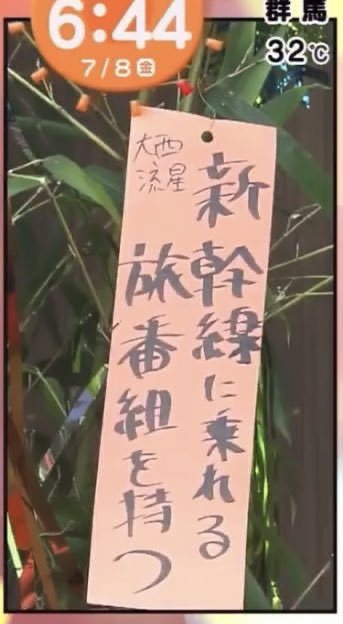 6:44
7/8金
群馬
32℃
新幹線に乗れる
旅番組を持つ
大西
流星